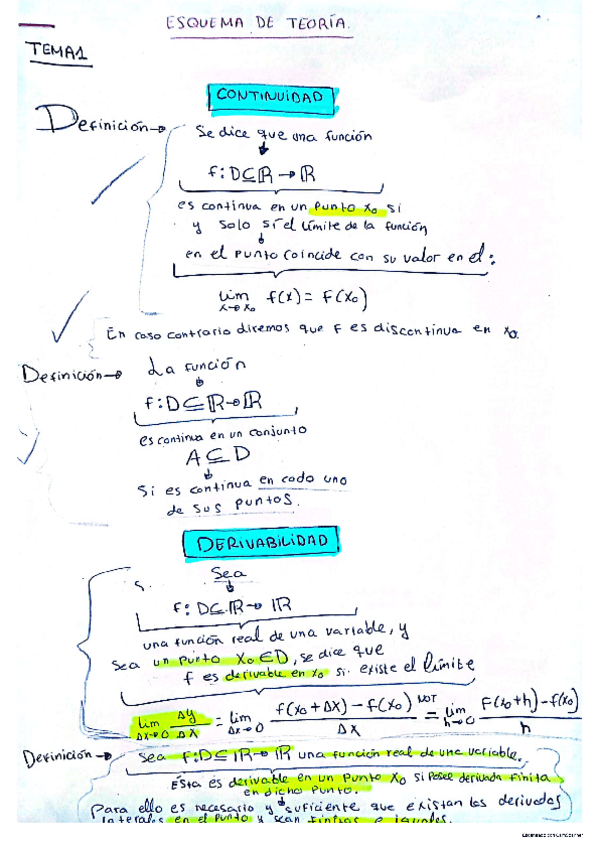 ESQUEMA DE TEORÍA.
TEMA1
CONTINUIDAD
Definición→
Se dice que una función
f: D⊆ℝ→ℝ
es continua en un punto x₀ si
y solo sí el límite de la función
en el punto coincide con su valor en el:
lim f(x) = F(x₀)
x→x₀
En caso contrario diremos que F es discontinua en x₀.
Definición→ La función
f: D⊆ℝ→ℝ
es continua en un conjunto
A⊆D
Si es continua en cada uno
de sus puntos.
DERIVABILIDAD
Sea
f: D⊆ℝ→ℝ
una función real de una variable, y
Sea un punto x₀∈D, se dice que
f es derivable en x₀ si existe el límite
lim Δy/Δx = lim f(x₀+Δx)-f(x₀)/Δx NOT = lim F(x₀+h)-f(x₀)/h
Δx→0 Δx→0 h→0
Definición→ Sea f: D⊆ℝ→ℝ una función real de una variable.
Ésta es derivable en un punto x₀ si posee derivada finita
en dicho punto.
Para ello es necesario y suficiente que existan las derivadas
laterales en el punto y sean finitas e iguales.